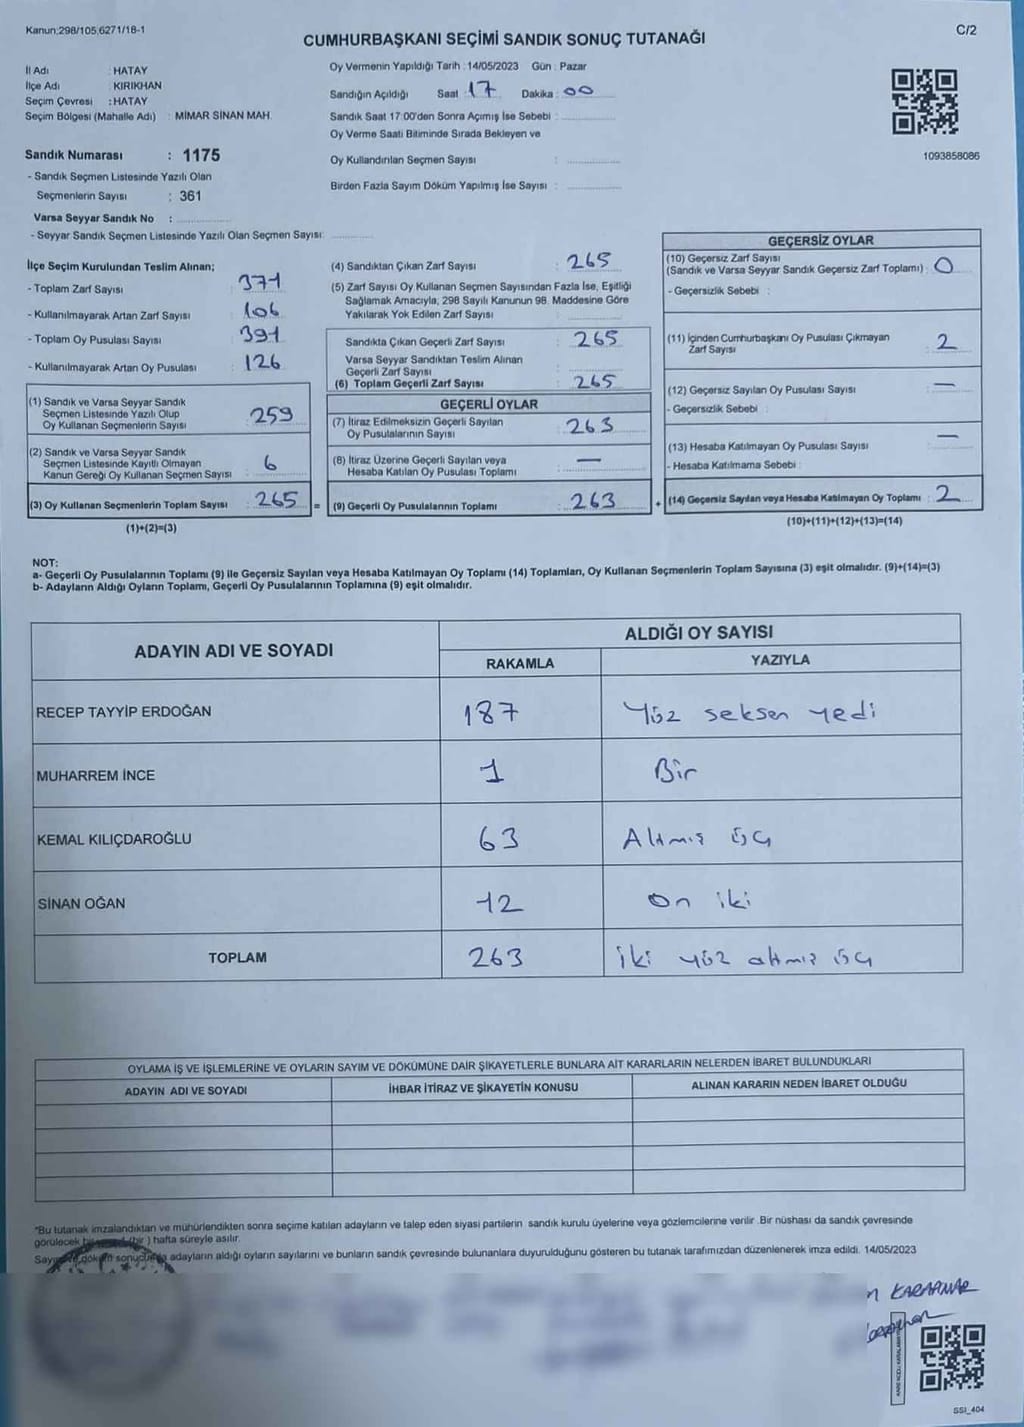 Kanun;298/105,6271/18-1
C/2
CUMHURBAŞKANI SEÇİMİ SANDIK SONUÇ TUTANAĞI
İl Adı : HATAY
İlçe Adı : KIRIKHAN
Seçim Çevresi : HATAY
Seçim Bölgesi (Mahalle Adı) : MİMAR SİNAN MAH.
Sandık Numarası : 1175
- Sandık Seçmen Listesinde Yazılı Olan
Seçmenlerin Sayısı : 361
Varsa Seyyar Sandık No :
- Seyyar Sandık Seçmen Listesinde Yazılı Olan Seçmen Sayısı:
Oy Vermenin Yapıldığı Tarih : 14/05/2023 Gün : Pazar
Sandığın Açıldığı Saat : 17 Dakika : 00
Sandık Saat 17:00'den Sonra Açımış İse Sebebi :
Oy Verme Saati Bitiminde Sırada Bekleyen ve
Oy Kullandırılan Seçmen Sayısı :
Birden Fazla Sayım Döküm Yapılmış İse Sayısı :
1093858086
İlçe Seçim Kurulundan Teslim Alınan;
- Toplam Zarf Sayısı : 371
- Kullanılmayarak Artan Zarf Sayısı : 106
- Toplam Oy Pusulası Sayısı : 391
- Kullanılmayarak Artan Oy Pusulası : 126
(1) Sandık ve Varsa Seyyar Sandık
Seçmen Listesinde Yazılı Olup
Oy Kullanan Seçmenlerin Sayısı : 259
(2) Sandık ve Varsa Seyyar Sandık
Seçmen Listesinde Kayıtlı Olmayan
Kanun Gereği Oy Kullanan Seçmen Sayısı : 6
(3) Oy Kullanan Seçmenlerin Toplam Sayısı : 265 =
(1)+(2)=(3)
(4) Sandıktan Çıkan Zarf Sayısı : 265
(5) Zarf Sayısı Oy Kullanan Seçmen Sayısından Fazla İse, Eşitliği
Sağlamak Amacıyla, 298 Sayılı Kanunun 98. Maddesine Göre
Yakılarak Yok Edilen Zarf Sayısı :
Sandıkta Çıkan Geçerli Zarf Sayısı : 265
Varsa Seyyar Sandıktan Teslim Alınan
Geçerli Zarf Sayısı :
(6) Toplam Geçerli Zarf Sayısı : 265
GEÇERLİ OYLAR
(7) İtiraz Edilmeksizin Geçerli Sayılan
Oy Pusulalarının Sayısı : 263
(8) İtiraz Üzerine Geçerli Sayılan veya
Hesaba Katılan Oy Pusulası Toplamı : —
(9) Geçerli Oy Pusulalarının Toplamı : 263 +
GEÇERSİZ OYLAR
(10) Geçersiz Zarf Sayısı
(Sandık ve Varsa Seyyar Sandık Geçersiz Zarf Toplamı) : 0
- Geçersizlik Sebebi :
(11) İçinden Cumhurbaşkanı Oy Pusulası Çıkmayan
Zarf Sayısı : 2
(12) Geçersiz Sayılan Oy Pusulası Sayısı : —
- Geçersizlik Sebebi :
(13) Hesaba Katılmayan Oy Pusulası Sayısı : —
- Hesaba Katılmama Sebebi :
(14) Geçersiz Sayılan veya Hesaba Katılmayan Oy Toplamı : 2
(10)+(11)+(12)+(13)=(14)
NOT:
a- Geçerli Oy Pusulalarının Toplamı (9) ile Geçersiz Sayılan veya Hesaba Katılmayan Oy Toplamı (14) Toplamları, Oy Kullanan Seçmenlerin Toplam Sayısına (3) eşit olmalıdır. (9)+(14)=(3)
b- Adayların Aldığı Oyların Toplamı, Geçerli Oy Pusulalarının Toplamına (9) eşit olmalıdır.
ADAYIN ADI VE SOYADI
ALDIĞI OY SAYISI
RAKAMLA YAZIYLA
RECEP TAYYİP ERDOĞAN 187 Yüz seksen yedi
MUHARREM İNCE 1 Bir
KEMAL KILIÇDAROĞLU 63 Altmış üç
SİNAN OĞAN 12 On iki
TOPLAM 263 iki yüz altmış üç
OYLAMA İŞ VE İŞLEMLERİNE VE OYLARIN SAYIM VE DÖKÜMÜNE DAİR ŞİKAYETLERLE BUNLARA AİT KARARLARIN NELERDEN İBARET BULUNDUKLARI
ADAYIN ADI VE SOYADI İHBAR İTİRAZ VE ŞİKAYETİN KONUSU ALINAN KARARIN NEDEN İBARET OLDUĞU
*Bu tutanak imzalandıktan ve mühürlendikten sonra seçime katılan adayların ve talep eden siyasi partilerin sandık kurulu üyelerine veya gözlemcilerine verilir. Bir nüshası da sandık çevresinde
görülecek bir (bir) hafta süreyle asılır.
Sayım ve döküm sonucunda adayların aldığı oyların sayılarını ve bunların sandık çevresinde bulunanlara duyurulduğunu gösteren bu tutanak tarafımızdan düzenlenerek imza edildi. 14/05/2023
SSI_404